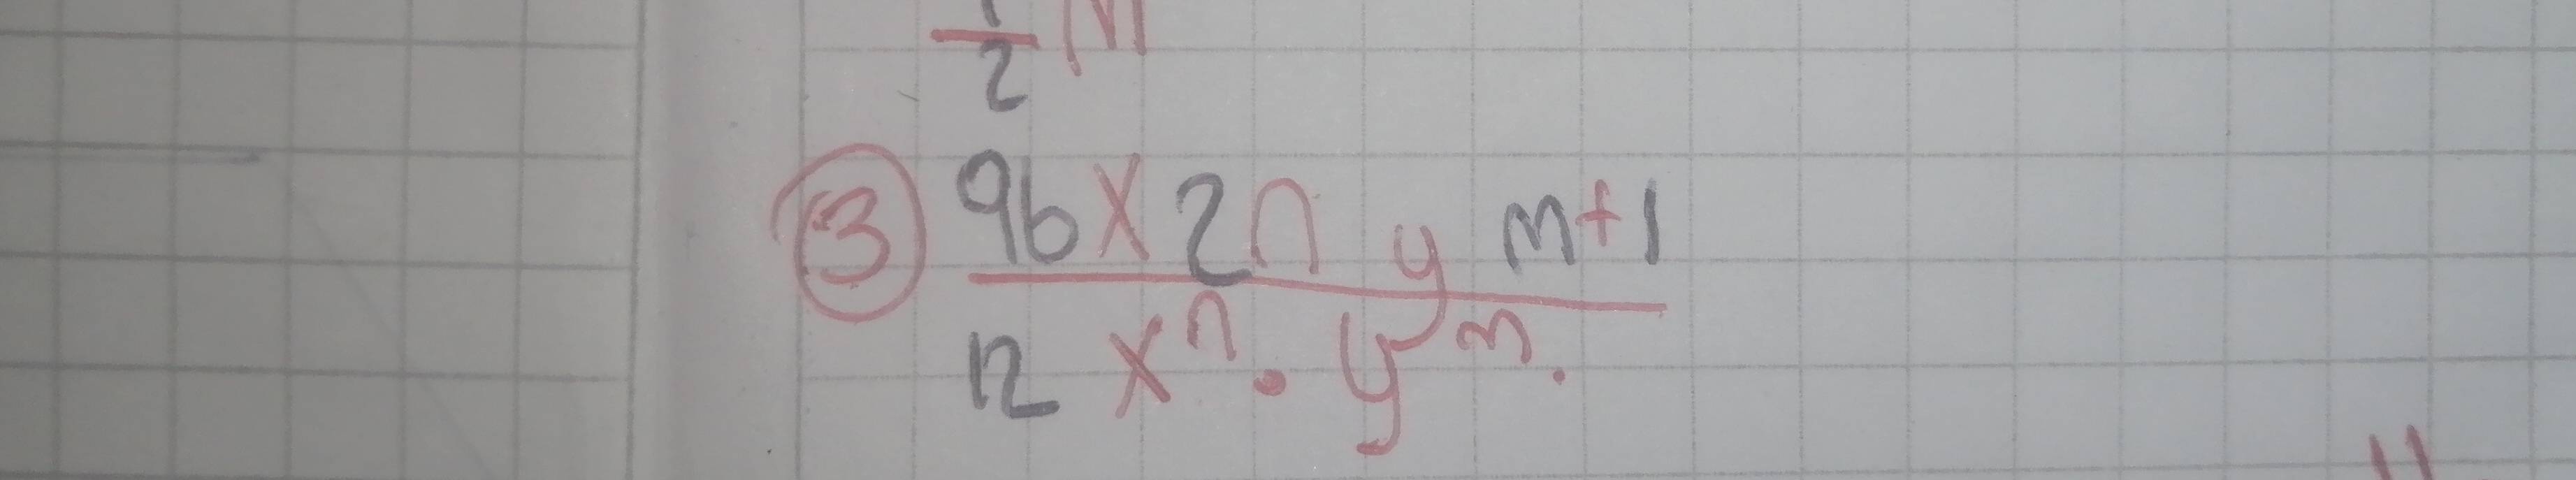 1/2
③ 96x2n y m+1
12 xⁿ · yᵐ.